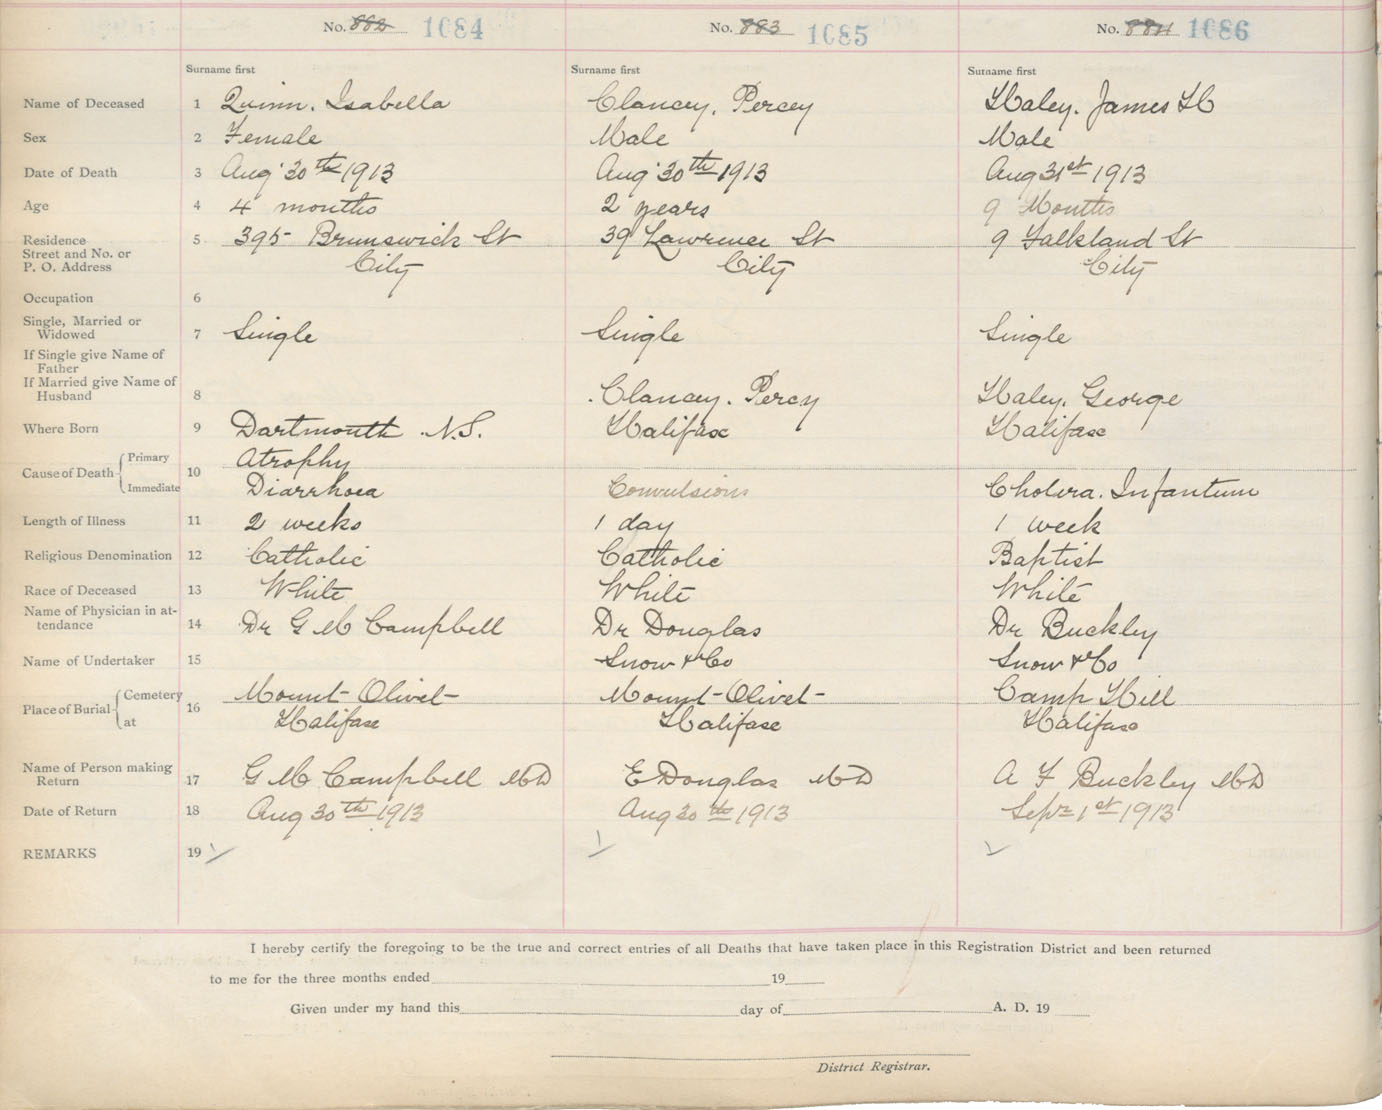 No. 882 1084 No. 883 1085 No. 884 1086
Surname first Surname first Surname first
Name of Deceased 1 Quinn. Isabella Clancey, Percey Haley. James H
Sex 2 Female Male Male
Date of Death 3 Aug 30th 1913 Aug 30th 1913 Aug 31st 1913
Age 4 4 months 2 years 9 Months
Residence 5 395 Brunswick St 39 Lawrence St 9 Falkland St
Street and No. or
P. O. Address City City City
Occupation 6
Single, Married or
Widowed 7 Single Single Single
If Single give Name of
Father
If Married give Name of
Husband 8 Clancey. Percy Haley. George
Where Born 9 Dartmouth N.S. Halifax Halifax
Cause of Death Primary 10 Atrophy
Immediate Diarrhoea Convulsions Cholera. Infantum
Length of Illness 11 2 weeks 1 day 1 week
Religious Denomination 12 Catholic Catholic Baptist
Race of Deceased 13 White White White
Name of Physician in at-
tendance 14 Dr G M Campbell Dr Douglas Dr Buckley
Name of Undertaker 15 Snow & Co Snow & Co
Place of Burial Cemetery 16 Mount Olivet Mount Olivet Camp Hill
at Halifax Halifax Halifax
Name of Person making
Return 17 G M Campbell MD E Douglas MD A F Buckley MD
Date of Return 18 Aug 30th 1913 Aug 30th 1913 Sept 1st 1913
REMARKS 19
I hereby certify the foregoing to be the true and correct entries of all Deaths that have taken place in this Registration District and been returned
to me for the three months ended 19
Given under my hand this day of A. D. 19
District Registrar.